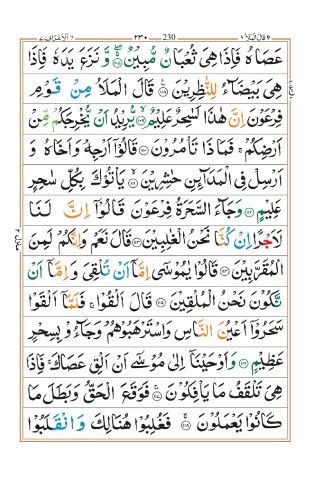 قال الملا ٩ ٢٣٠ 230 الاعراف ٧
عَصَاهُ فَاِذَا هِىَ ثُعۡبَانٌ مُّبِيۡنٌ ۖۚ ﴿۱۰۷﴾ وَّنَزَعَ يَدَهٗ فَاِذَا
هِىَ بَيۡضَآءُ لِلنّٰظِرِيۡنَ ﴿۱۰۸﴾ قَالَ الۡمَلَاُ مِنۡ قَوۡمِ
فِرۡعَوۡنَ اِنَّ هٰذَا لَسٰحِرٌ عَلِيۡمٌ ﴿۱۰۹﴾ يُّرِيۡدُ اَنۡ يُّخۡرِجَكُمۡ مِّنۡ
اَرۡضِكُمۡ ۚ فَمَاذَا تَاۡمُرُوۡنَ ﴿۱۱۰﴾ قَالُوۡۤا اَرۡجِهۡ وَاَخَاهُ وَ
اَرۡسِلۡ فِى الۡمَدَآئِنِ حٰشِرِيۡنَ ﴿۱۱۱﴾ يَاۡتُوۡكَ بِكُلِّ سٰحِرٍ
عَلِيۡمٍ ﴿۱۱۲﴾ وَجَآءَ السَّحَرَةُ فِرۡعَوۡنَ قَالُوۡۤا اِنَّ لَنَا
لَاَجۡرًا اِنۡ كُنَّا نَحۡنُ الۡغٰلِبِيۡنَ ﴿۱۱۳﴾ قَالَ نَعَمۡ وَاِنَّكُمۡ لَمِنَ
الۡمُقَرَّبِيۡنَ ﴿۱۱۴﴾ قَالُوۡا يٰمُوۡسٰٓى اِمَّاۤ اَنۡ تُلۡقِىَ وَاِمَّاۤ اَنۡ
نَّكُوۡنَ نَحۡنُ الۡمُلۡقِيۡنَ ﴿۱۱۵﴾ قَالَ اَلۡقُوۡا ۚ فَلَمَّاۤ اَلۡقَوۡا
سَحَرُوۡۤا اَعۡيُنَ النَّاسِ وَاسۡتَرۡهَبُوۡهُمۡ وَجَآءُوۡ بِسِحۡرٍ
عَظِيۡمٍ ﴿۱۱۶﴾ وَاَوۡحَيۡنَاۤ اِلٰى مُوۡسٰٓى اَنۡ اَلۡقِ عَصَاكَ ۚ فَاِذَا
هِىَ تَلۡقَفُ مَا يَاۡفِكُوۡنَ ۚ ﴿۱۱۷﴾ فَوَقَعَ الۡحَقُّ وَبَطَلَ مَا
كَانُوۡا يَعۡمَلُوۡنَ ۚ ﴿۱۱۸﴾ فَغُلِبُوۡا هُنَالِكَ وَانْقَلَبُوۡا